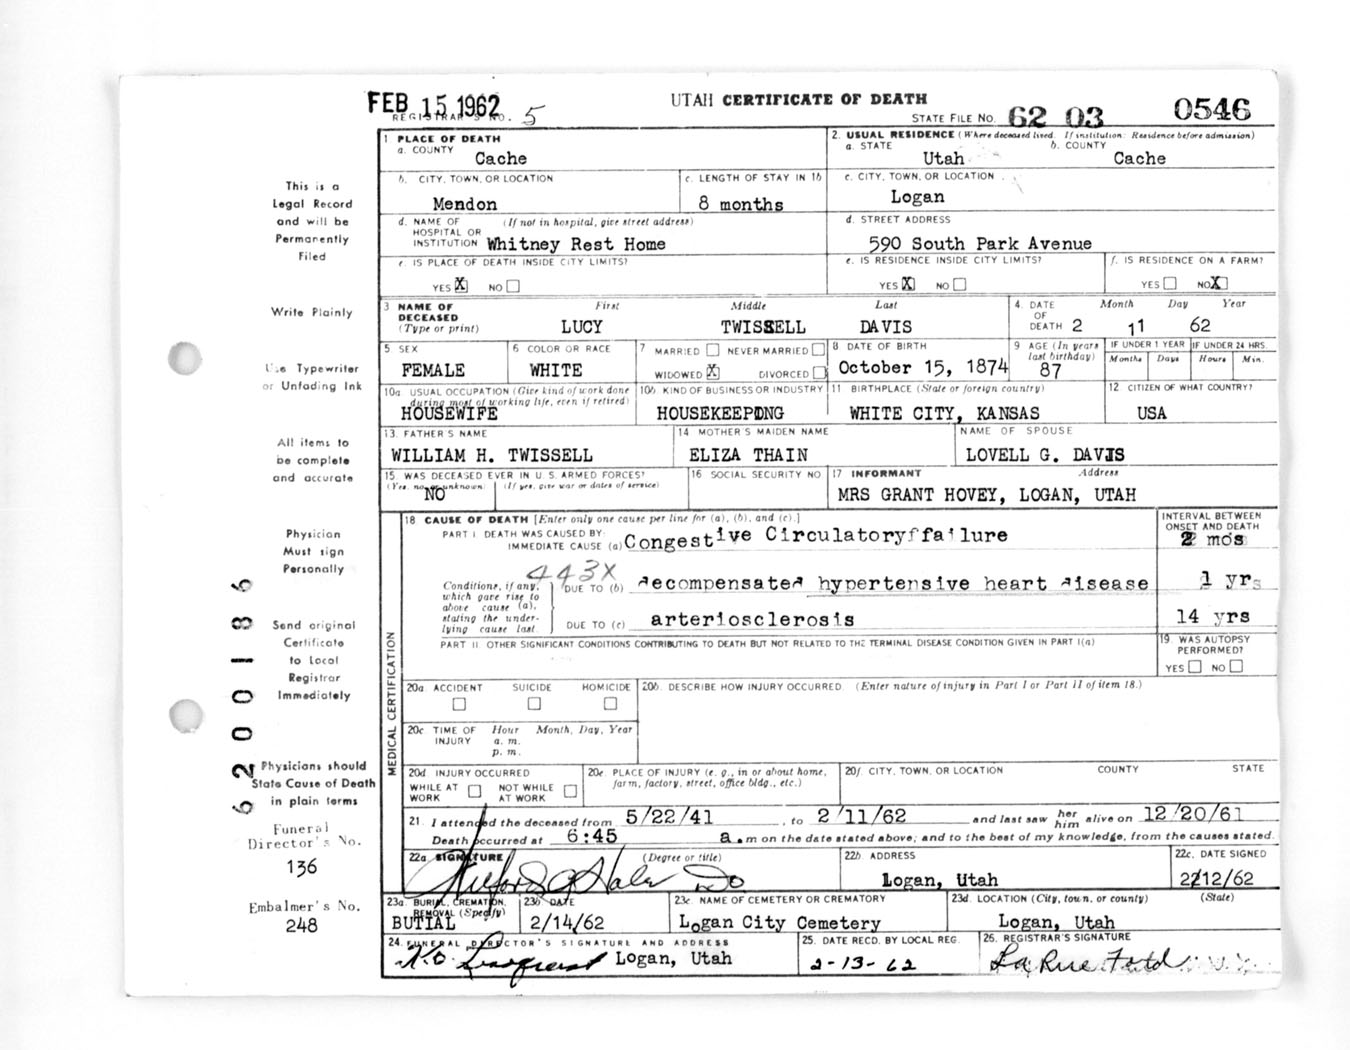 FEB 15 1962
UTAH CERTIFICATE OF DEATH
REGISTRAR'S NO. 5
STATE FILE NO. 62 03 0546
1 PLACE OF DEATH
a. COUNTY Cache
2. USUAL RESIDENCE (Where deceased lived. If institution: Residence before admission)
a. STATE Utah b. COUNTY Cache
b. CITY, TOWN, OR LOCATION Mendon
c. LENGTH OF STAY IN 1b 8 months
c. CITY, TOWN, OR LOCATION Logan
d. NAME OF HOSPITAL OR INSTITUTION (If not in hospital, give street address) Whitney Rest Home
d. STREET ADDRESS 590 South Park Avenue
e. IS PLACE OF DEATH INSIDE CITY LIMITS? YES X NO
e. IS RESIDENCE INSIDE CITY LIMITS? YES X NO
f. IS RESIDENCE ON A FARM? YES NO X
3 NAME OF DECEASED (Type or print)
First Middle Last
LUCY TWISSELL DAVIS
4. DATE OF DEATH Month Day Year
2 11 62
5. SEX FEMALE
6 COLOR OR RACE WHITE
7 MARRIED NEVER MARRIED
WIDOWED X DIVORCED
8 DATE OF BIRTH October 15, 1874
9 AGE (In years last birthday) 87
IF UNDER 1 YEAR Months Days
IF UNDER 24 HRS. Hours Min.
10a USUAL OCCUPATION (Give kind of work done during most of working life, even if retired) HOUSEWIFE
10b. KIND OF BUSINESS OR INDUSTRY HOUSEKEEPING
11 BIRTHPLACE (State or foreign country) WHITE CITY, KANSAS
12 CITIZEN OF WHAT COUNTRY? USA
13. FATHER'S NAME WILLIAM H. TWISSELL
14 MOTHER'S MAIDEN NAME ELIZA THAIN
NAME OF SPOUSE LOVELL G. DAVIS
15 WAS DECEASED EVER IN U.S. ARMED FORCES?
(Yes, no, or unknown) (If yes, give war or dates of service)
NO
16 SOCIAL SECURITY NO
17 INFORMANT Address
MRS GRANT HOVEY, LOGAN, UTAH
MEDICAL CERTIFICATION
18 CAUSE OF DEATH [Enter only one cause per line for (a), (b), and (c).]
INTERVAL BETWEEN ONSET AND DEATH
PART I. DEATH WAS CAUSED BY:
IMMEDIATE CAUSE (a) Congestive Circulatory failure 2 mos
443X
Conditions, if any, which gave rise to above cause (a), stating the underlying cause last.
DUE TO (b) decompensated hypertensive heart disease 1 yrs
DUE TO (c) arteriosclerosis 14 yrs
PART II. OTHER SIGNIFICANT CONDITIONS CONTRIBUTING TO DEATH BUT NOT RELATED TO THE TERMINAL DISEASE CONDITION GIVEN IN PART I(a)
19. WAS AUTOPSY PERFORMED? YES NO
20a. ACCIDENT SUICIDE HOMICIDE
20b. DESCRIBE HOW INJURY OCCURRED. (Enter nature of injury in Part I or Part II of item 18.)
20c TIME OF INJURY Hour Month, Day, Year
a. m.
p. m.
20d INJURY OCCURRED
WHILE AT WORK NOT WHILE AT WORK
20e. PLACE OF INJURY (e. g., in or about home, farm, factory, street, office bldg., etc.)
20f. CITY, TOWN, OR LOCATION COUNTY STATE
21. I attended the deceased from 5/22/41, to 2/11/62 and last saw her him alive on 12/20/61
Death occurred at 6:45 a.m on the date stated above; and to the best of my knowledge, from the causes stated.
22a SIGNATURE (Degree or title)
22b. ADDRESS Logan, Utah
22c. DATE SIGNED 2/12/62
23a. BURIAL, CREMATION, REMOVAL (Specify) BUTIAL
23b. DATE 2/14/62
23c. NAME OF CEMETERY OR CREMATORY Logan City Cemetery
23d. LOCATION (City, town, or county) (State) Logan, Utah
24. FUNERAL DIRECTOR'S SIGNATURE AND ADDRESS Logan, Utah
25. DATE RECD. BY LOCAL REG. 2-13-62
26. REGISTRAR'S SIGNATURE
This is a
Legal Record
and will be
Permanently
Filed
Write Plainly
Use Typewriter
or Unfading Ink
All items to
be complete
and accurate
Physician
Must sign
Personally
Send original
Certificate
to Local
Registrar
Immediately
Physicians should
State Cause of Death
in plain terms
Funeral
Director's No.
136
Embalmer's No.
248
6200186